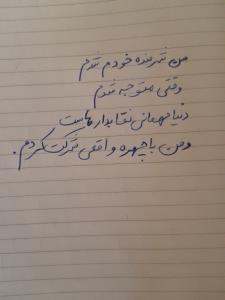 من شرمنده خودم شدم
وقتی متوجه شدم
دنیا مهمانی نقابدارهاست
ومن با چهره واقعی شرکت کردم.